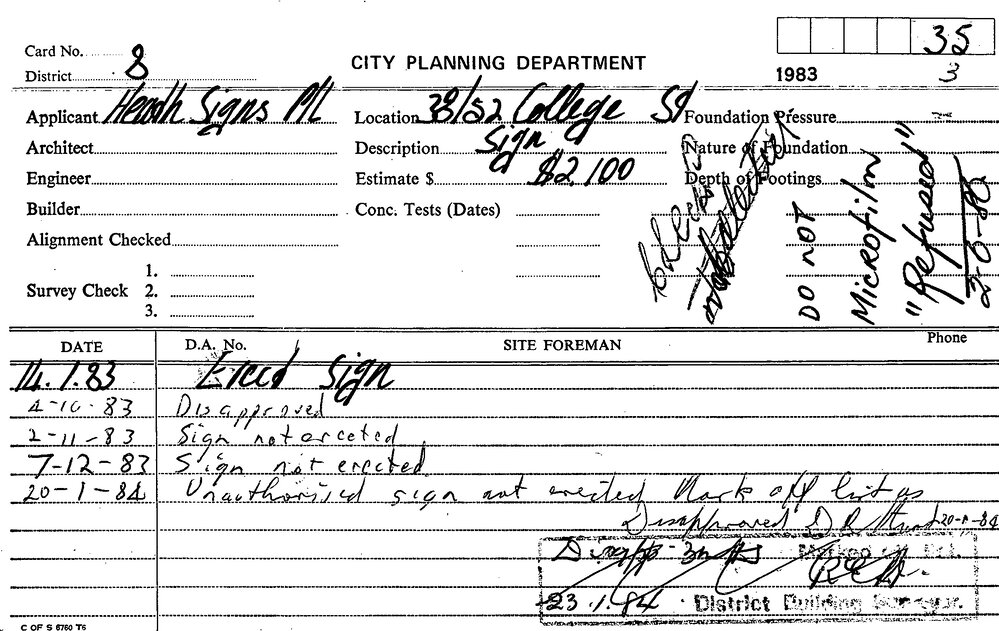 35
Card No. 8
CITY PLANNING DEPARTMENT
District
1983 3
Applicant Heath Signs P/L Location 38/52 College St Foundation Pressure
Architect Description Sign Nature of Foundation
Engineer Estimate $ $2,100 Depth of Footings
Builder Conc. Tests (Dates)
Alignment Checked
1.
Survey Check 2.
3.
DO NOT
Microfilm
"Refused"
DATE D.A. No. SITE FOREMAN Phone
14.1.83 Erect Sign
4-10-83 Disapproved
2-11-83 Sign not erected
7-12-83 Sign not erected
20-1-84 Unauthorised sign not erected Mark off list as
Disapproved 20-1-84
Marked
23.1.84 District Building Surveyor.
C OF S 6760 T6